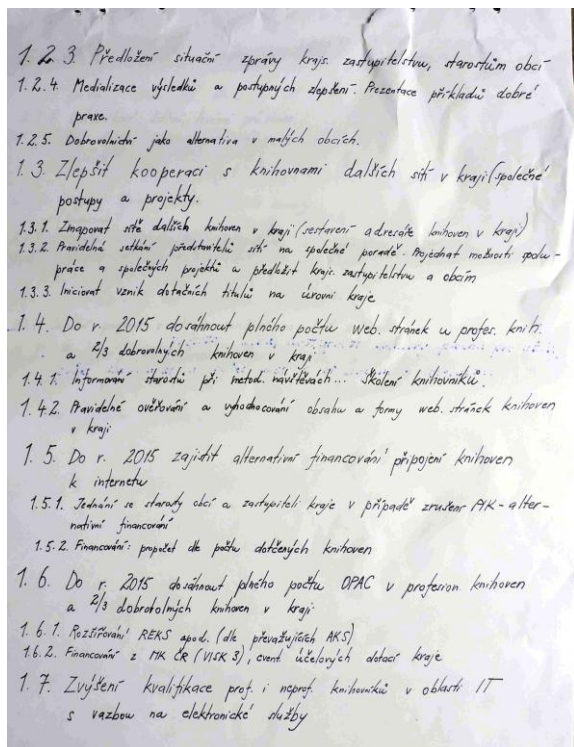 1.2.3. Předložení situační zprávy krajs. zastupitelstvu, starostům obcí
1.2.4. Medializace výsledků a postupných zlepšení. Prezentace příkladů dobré
praxe.
1.2.5. Dobrovolnictví jako alternativa v malých obcích.
1.3. Zlepšit kooperaci s knihovnami dalších sítí v kraji (společné
postupy a projekty.
1.3.1. Zmapovat sítě dalších knihoven v kraji (sestavení adresáře knihoven v kraji)
1.3.2 Pravidelná setkání představitelů sítí na společné poradě. Projednat možnosti spolu-
práce a společných projektů a předložit krajs. zastupitelstvu a obcím
1.3.3. Iniciovat vznik dotačních titulů na úrovni kraje
1.4. Do r. 2015 dosáhnout plného počtu web. stránek u profes. knih.
a 2/3 dobrovolných knihoven v kraji
1.4.1. Informování starostů při metod. návštěvách... Školení knihovníků.
1.4.2. Pravidelné ověřování a vyhodnocování obsahu a formy web. stránek knihoven
v kraji
1.5. Do r. 2015 zajistit alternativní financování připojení knihoven
k internetu
1.5.1. Jednání se starosty obcí a zastupiteli kraje v případě zrušení - alter-
nativní financování
1.5.2. Financování: propočet dle počtu dotčených knihoven
1.6. Do r. 2015 dosáhnout plného počtu OPAC v profesion. knihoven
a 2/3 dobrovolných knihoven v kraji
1.6.1. Rozšiřování REKS apod. (dle převažujících AKS)
1.6.2. Financování z MK ČR (VISK 3), event. účelových dotací kraje
1.7. Zvýšení kvalifikace prof. i neprof. knihovníků v oblasti IT
s vazbou na elektronické služby